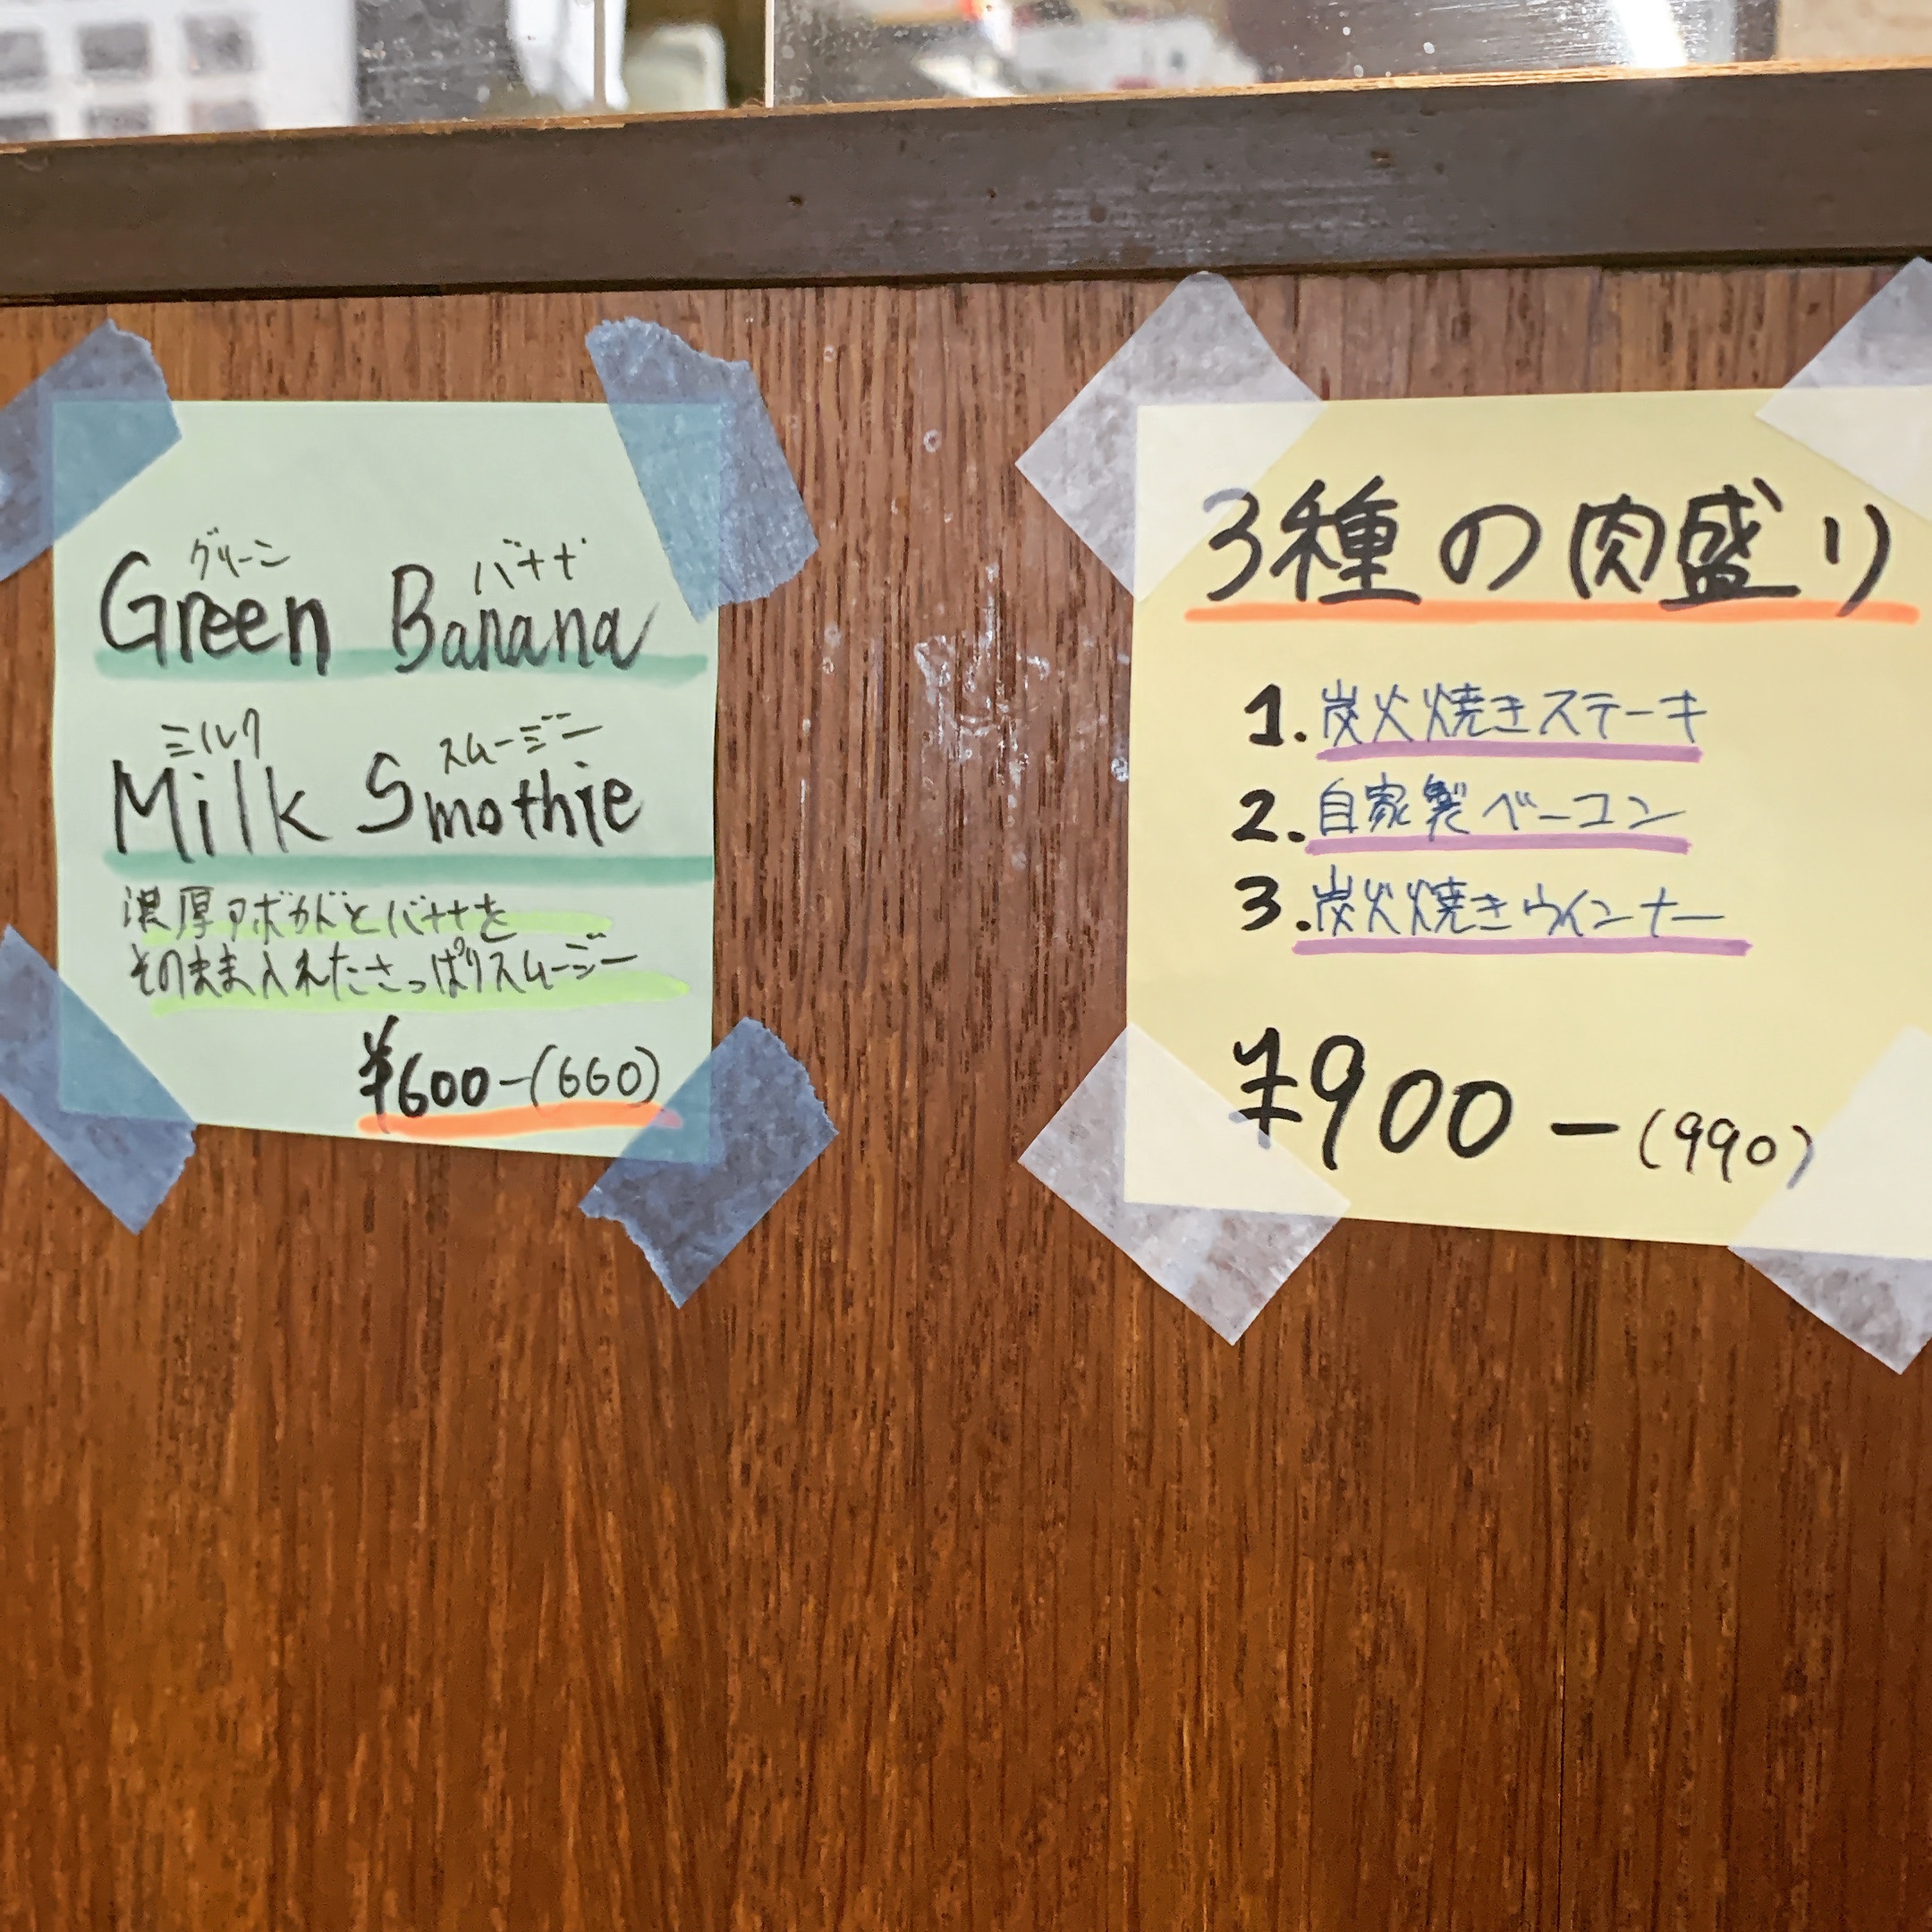 グリーン バナナ
Green Banana
ミルク スムージー
Milk Smothie
濃厚アボカドとバナナを
そのまま入れたさっぱりスムージー
¥600-(660)
3種の肉盛り
1. 炭火焼きステーキ
2. 自家製ベーコン
3. 炭火焼きウインナー
¥900-(990)